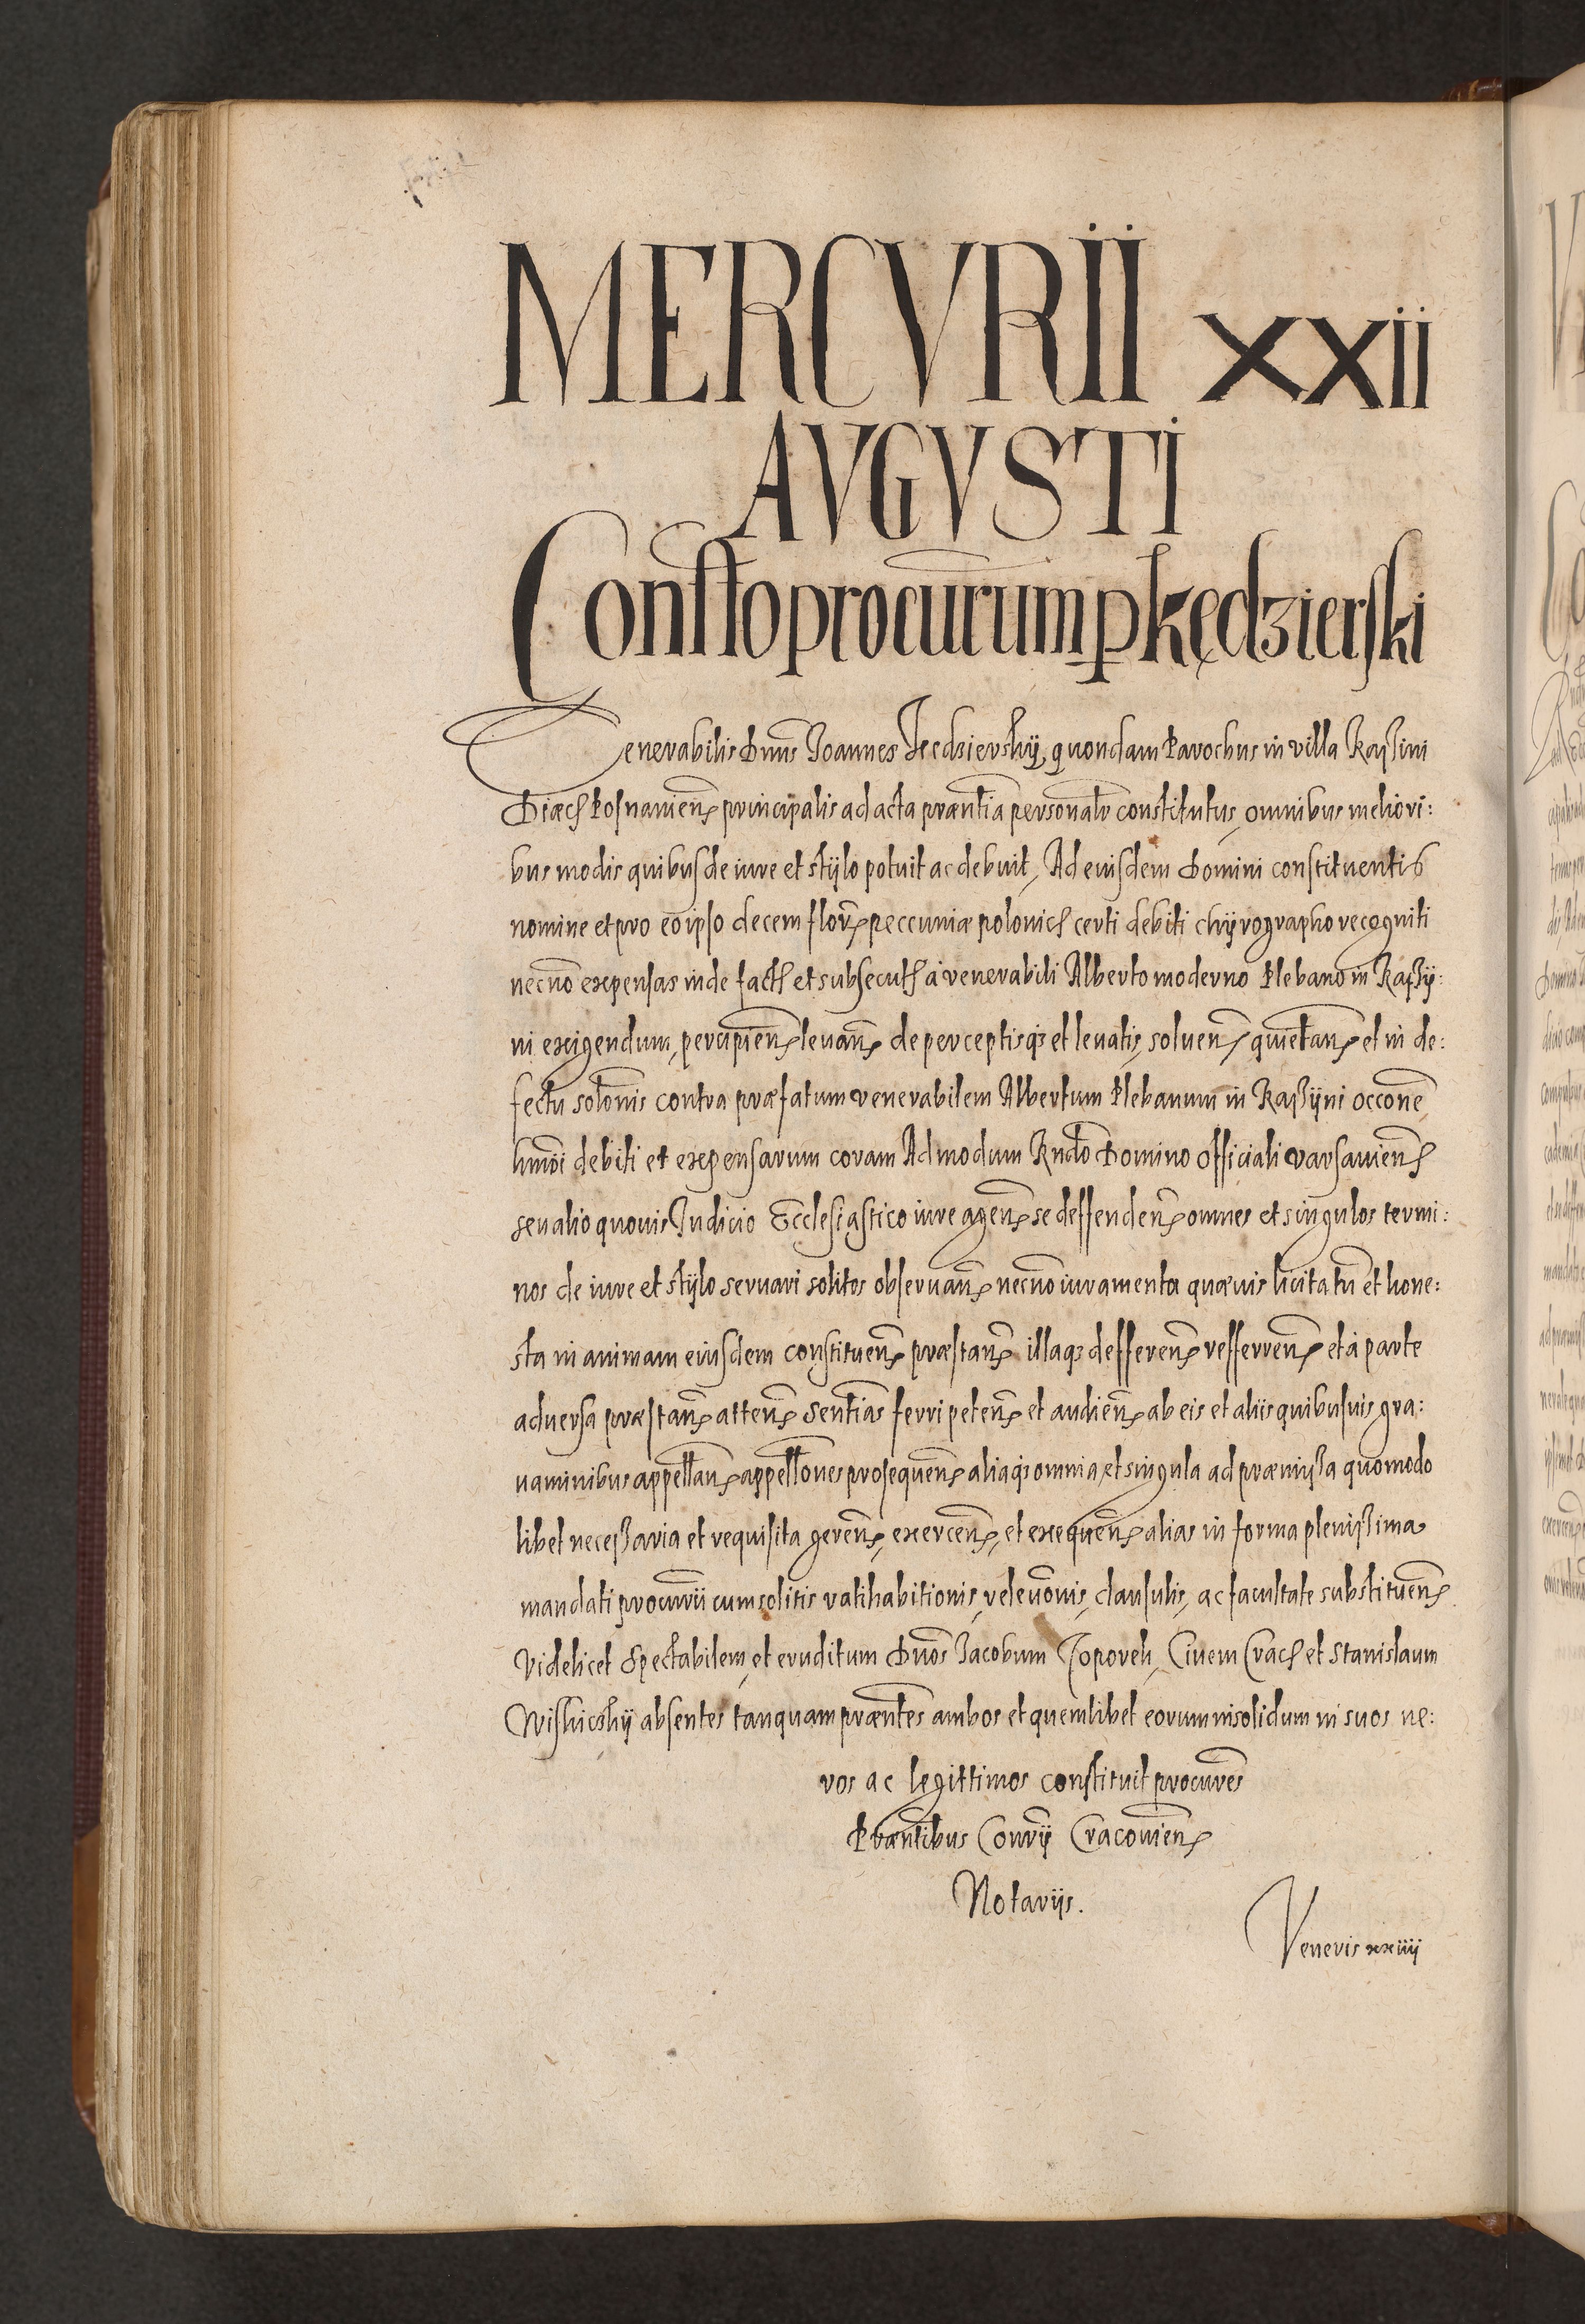 MERCVRII XXII
AVGVSTI
Constto procurum p Kędzierski
Venerabilis Dnus Joannes Kedzierskij, quondam Parochus in villa Kaßini
Diæc Posnanien principalis ad acta præntia personalr constitutus, omnibus meliori:
bus modis quibus de iure et stijlo potuit ac debuit, Ad eiusdem Domini constituentis
nomine et pro eo ipso decem flor peccuniæ polonic certi debiti chijrographo recogniti
necno expensas inde fact et subsecut à venerabili Alberto moderno Plebano in Kaßij:
ni exigendum, percipien levan de perceptisq et levatis, soluen quietan et in de:
fectu solonis contra præfatum venerabilem Albertum Plebanum in Kaßijni occone
hmoi debiti et expensarum coram Admodum Rndo Domino Officiali Varsavien
seu alio quovis Judicio Ecclesiastico iure agen se deffenden omnes et singulos termi:
nos de iure et stijlo servari solitos observan necno iuramenta quævis licita tn et hone:
sta in animam eiusdem constituen præstan illaq defferen refferren et à parte
adversa præstan atten sentias ferri peten et audien ab eis et aliis quibusvis gra:
vaminibus appellan appellones prosequen aliaq omnia et singula ad præmißa quomodo
libet neceßaria et requisita geren, exercen, et exequen alias in forma plenißima
mandati procurii cum solitis ratihabitionis, relevonis, clausulis, ac facultate substituen
Videlicet Spectabilem, et eruditum Dnos Jacobum Toporek, Civem Crac et Stanislaum
Wiskicskij absentes tanquam præntes ambos et quemlibet eorum insolidum in suos ve:
ros ac legittimos constituit procures
Præntibus Conrij Cracovien
Notarijs.
Veneris xxiiij